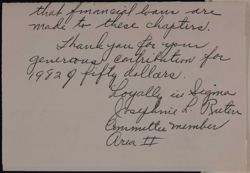 that financial loans are
made to these chapters.
Thank you for your
generous contribution for
1982 of fifty dollars.
Loyally in Sigma
Josephine L.
Committee member
Area II